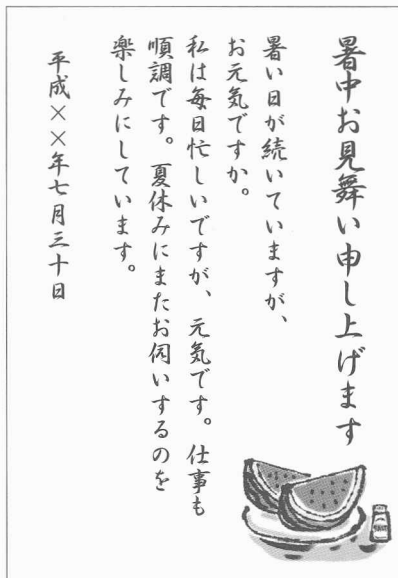 暑中お見舞い申し上げます
暑い日が続いていますが、
お元気ですか。
私は毎日忙しいですが、元気です。仕事も
順調です。夏休みにまたお伺いするのを
楽しみにしています。
平成××年七月三十日